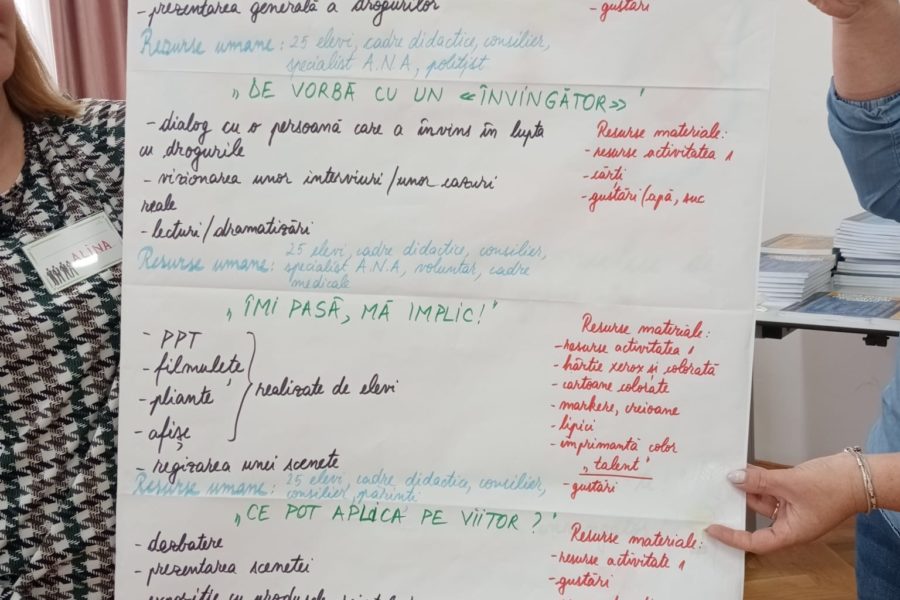 - prezentarea generală a drogurilor
- gustări
Resurse umane: 25 elevi, cadre didactice, consilier,
specialist A.N.A, polițist
„DE VORBĂ CU UN «ÎNVINGĂTOR»”
- dialog cu o persoană care a învins în lupta
cu drogurile
- vizionarea unor interviuri/unor cazuri
reale
- lecturi/dramatizări
Resurse materiale:
- resurse activitatea 1
- cărți
- gustări/apă, suc
Resurse umane: 25 elevi, cadre didactice, consilier,
specialist A.N.A, voluntar, cadre
medicale
ALINA
„ÎMI PASĂ, MĂ IMPLIC!”
- PPT
- filmulețe
- pliante
- afișe
realizate de elevi
- regizarea unei scenete
Resurse materiale:
- resurse activitatea 1
- hârtie xerox și colorată
- cartoane colorate
- markere, creioane
- lipici
- imprimantă color
„talent”
- gustări
Resurse umane: 25 elevi, cadre didactice, consilier,
consilier, părinți
„CE POT APLICA PE VIITOR?”
- dezbatere
- prezentarea scenetei
Resurse materiale:
- resurse activitate 1
- gustări